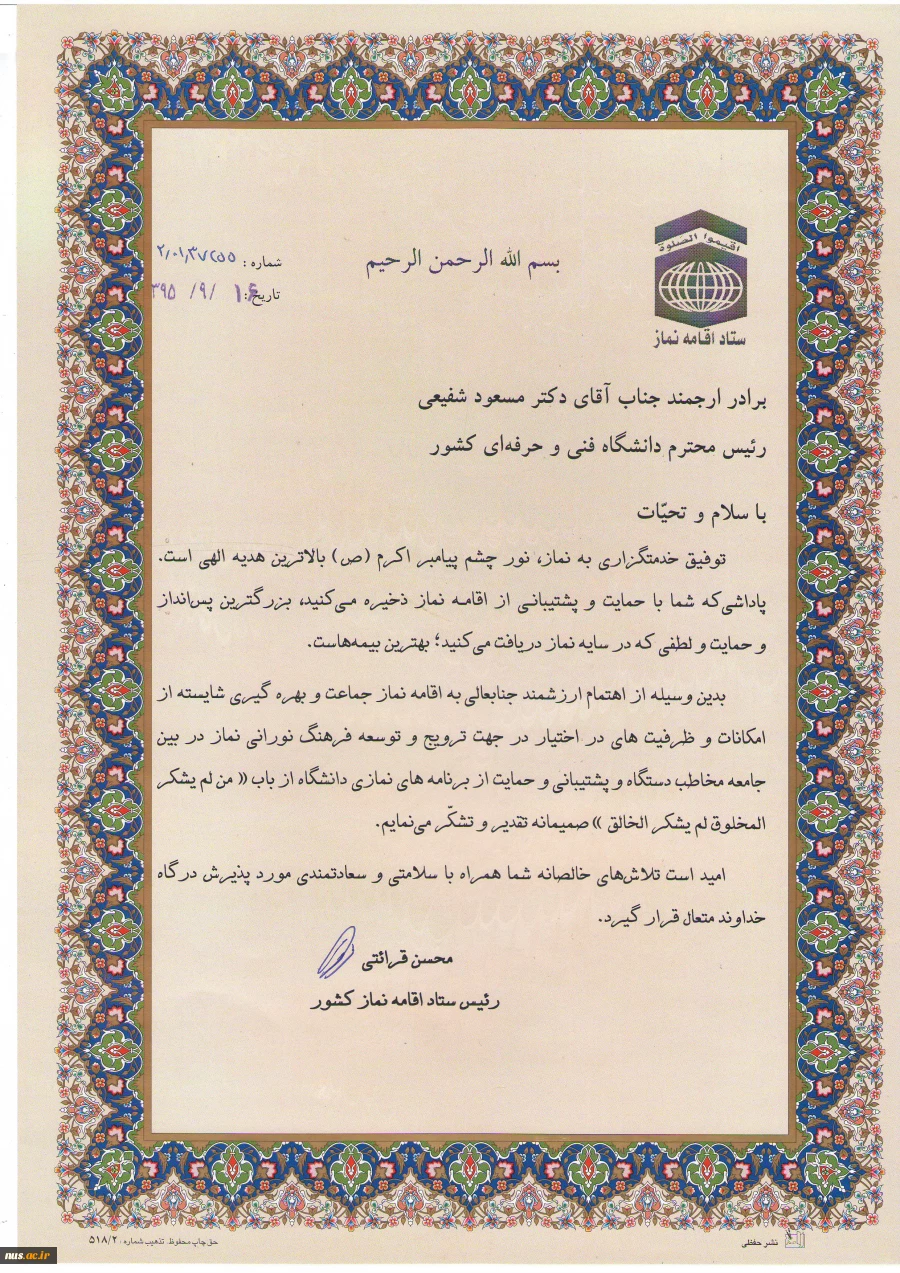 اقیموا الصلوة
ستاد اقامه نماز
بسم الله الرحمن الرحیم
شماره : ۲/۰۱/۳۷۲۵۵
تاریخ : ۱۶ /۹/ ۳۹۵
برادر ارجمند جناب آقای دکتر مسعود شفیعی
رئیس محترم دانشگاه فنی و حرفه‌ای کشور
با سلام و تحیّات
توفیق خدمتگزاری به نماز، نور چشم پیامبر اکرم (ص) بالاترین هدیه الهی است.
پاداشی‌که شما با حمایت و پشتیبانی از اقامه نماز ذخیره می‌کنید، بزرگترین پس‌انداز
و حمایت و لطفی که در سایه نماز دریافت می‌کنید؛ بهترین بیمه‌هاست.
بدین وسیله از اهتمام ارزشمند جنابعالی به اقامه نماز جماعت و بهره گیری شایسته از
امکانات و ظرفیت های در اختیار در جهت ترویج و توسعه فرهنگ نورانی نماز در بین
جامعه مخاطب دستگاه و پشتیبانی و حمایت از برنامه های نمازی دانشگاه از باب « من لم یشکر
المخلوق لم یشکر الخالق » صمیمانه تقدیر و تشکّر می‌نمایم.
امید است تلاش‌های خالصانه شما همراه با سلامتی و سعادتمندی مورد پذیرش درگاه
خداوند متعال قرار گیرد.
محسن قرائتی
رئیس ستاد اقامه نماز کشور
نشر حفظی
حق چاپ محفوظ. تذهیب شماره : ۵۱۸/۲
nus.ac.ir